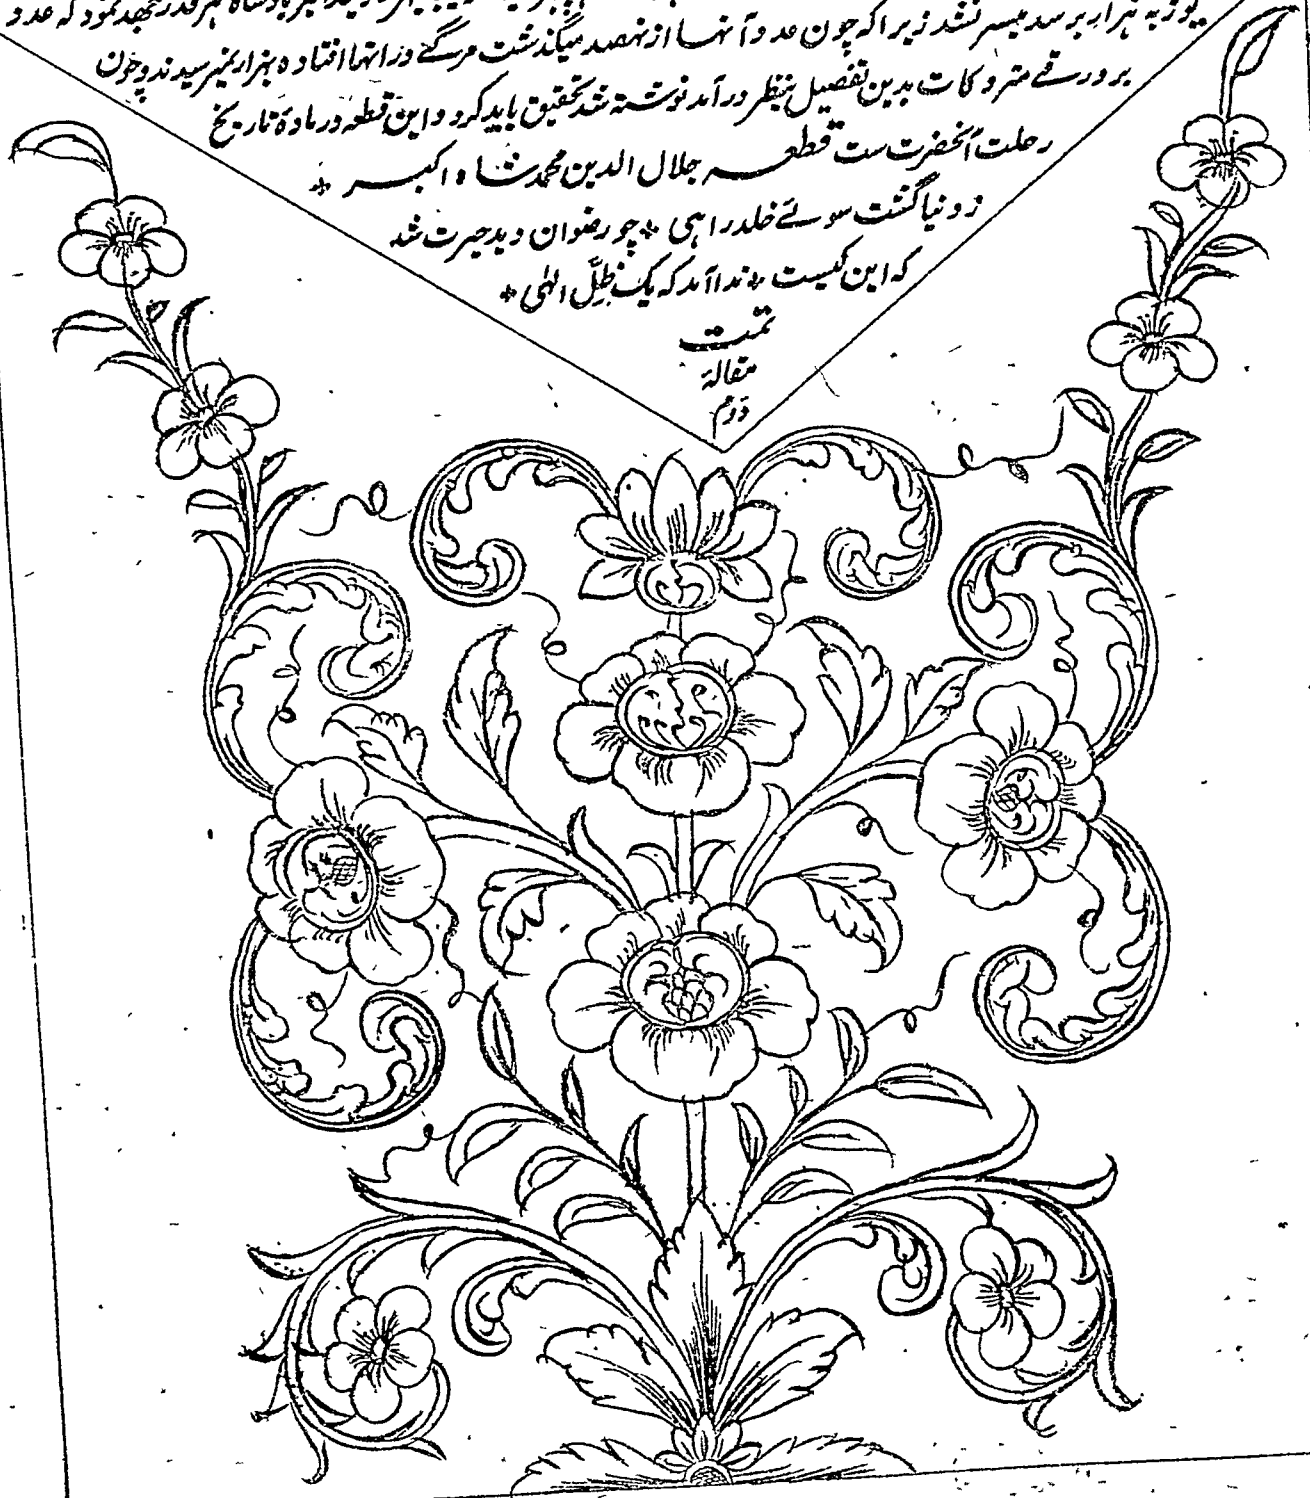 یوز به هزار برسد میسر نشد زیرا که چون عدد آنها از نهصد میگذشت مرگے در انها افتاده بهزار نمیرسیدند و چون
بر ورقے متروکات بدین تفصیل بنظر درآمد نوشته شد تحقیق باید کرد و این قطعه در مادهٔ تاریخ
رحلت آنحضرت ست قطعه جلال الدین محمد شاه اکبر *
ز دنیا گشت سوئے خلد راهی * چو رضوان دید حیرت شد
که این کیست * ندا آمد که یک ظِلّ الهٰی *
تمت
مقالهٔ
دوم